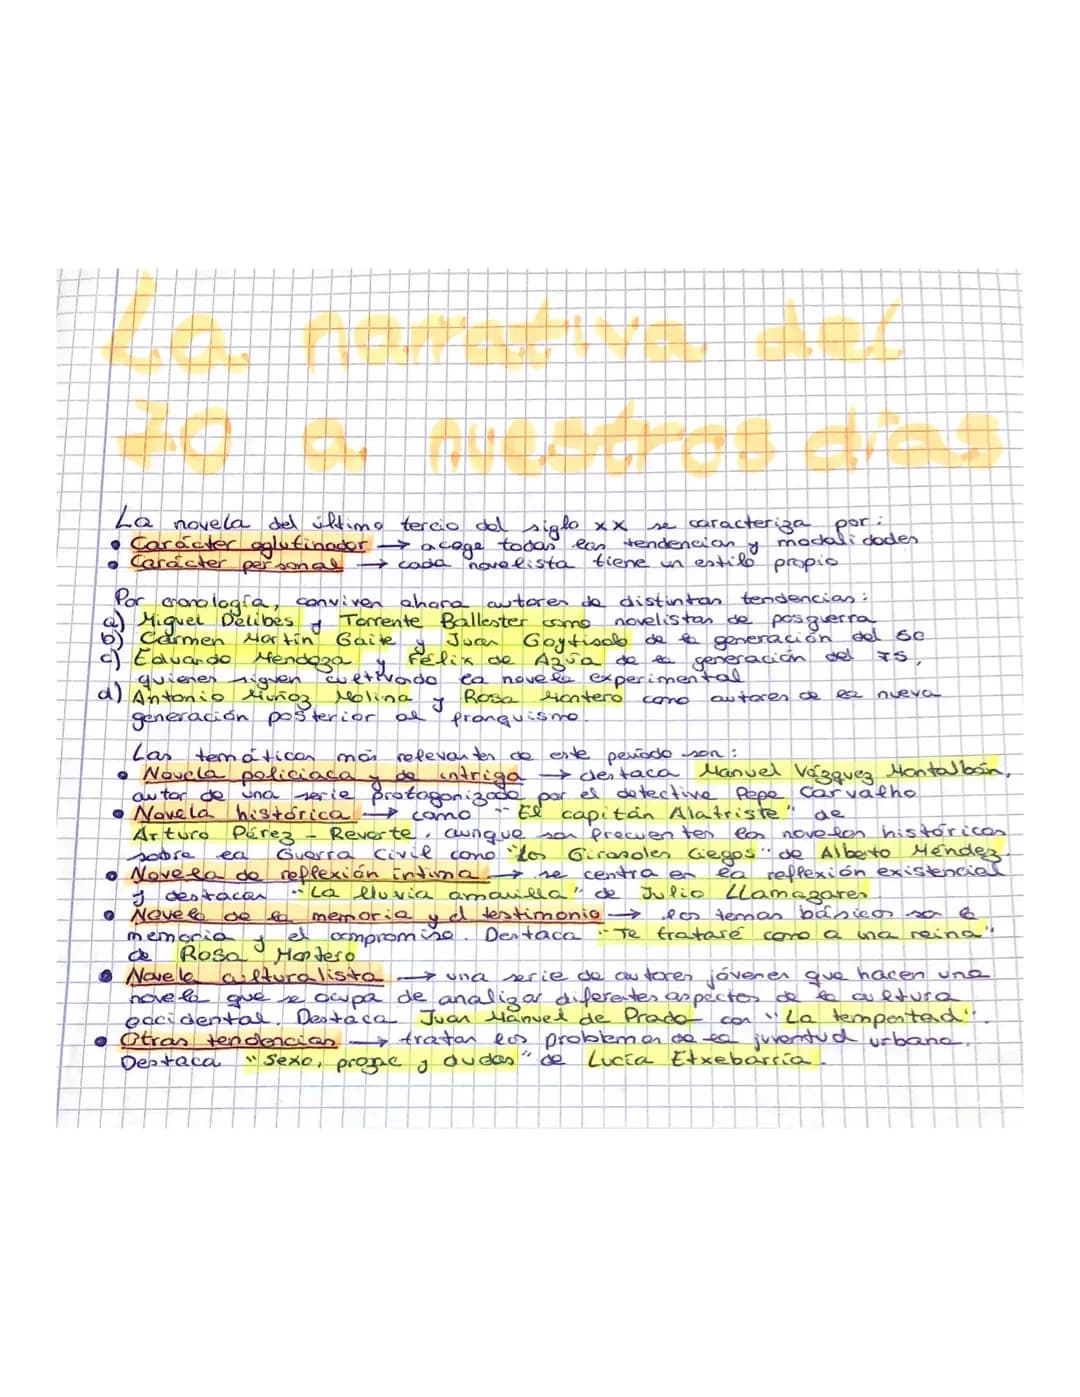 La narrativa del
70 a nuestros días
La novela del último tercio del siglo XX se caracteriza por:
• Carácter aglutinador → acoge todas las tendencias y modalidades
• Carácter personal → cada novelista tiene un estilo propio
Por cronología, conviven ahora autores de distintas tendencias:
a) Miguel Delibes y Torrente Ballester como novelistas de posguerra
b) Carmen Martín Gaite y Juan Goytisolo de la generación del 50
c) Eduardo Mendoza y Félix de Azúa de la generación del 75,
quienes siguen cultivando la novela experimental
d) Antonio Muñoz Molina y Rosa Montero como autores de la nueva
generación posterior al franquismo.
Las temáticas más relevantes de este periodo son:
• Novela policiaca y de intriga → destaca Manuel Vázquez Montalbán,
autor de una serie protagonizada por el detective Pepe Carvalho
• Novela histórica → como "El capitán Alatriste" de
Arturo Pérez-Reverte, aunque son frecuentes las novelas históricas
sobre la Guerra Civil como "los Girasoles Ciegos" de Alberto Méndez.
• Novela de reflexión íntima → se centra en la reflexión existencial
y destacan "La lluvia amarilla" de Julio Llamazares
• Novela de la memoria y el testimonio → los temas básicos son la
memoria y el compromiso. Destaca "Te trataré como a una reina"
de Rosa Montero
• Novela culturalista → una serie de autores jóvenes que hacen una
novela que se ocupa de analizar diferentes aspectos de la cultura
occidental. Destaca Juan Manuel de Prado con "La tempestad".
• Otras tendencias → tratan los problemas de la juventud urbana.
Destaca "Sexo, prozac y dudas" de Lucía Etxebarría.